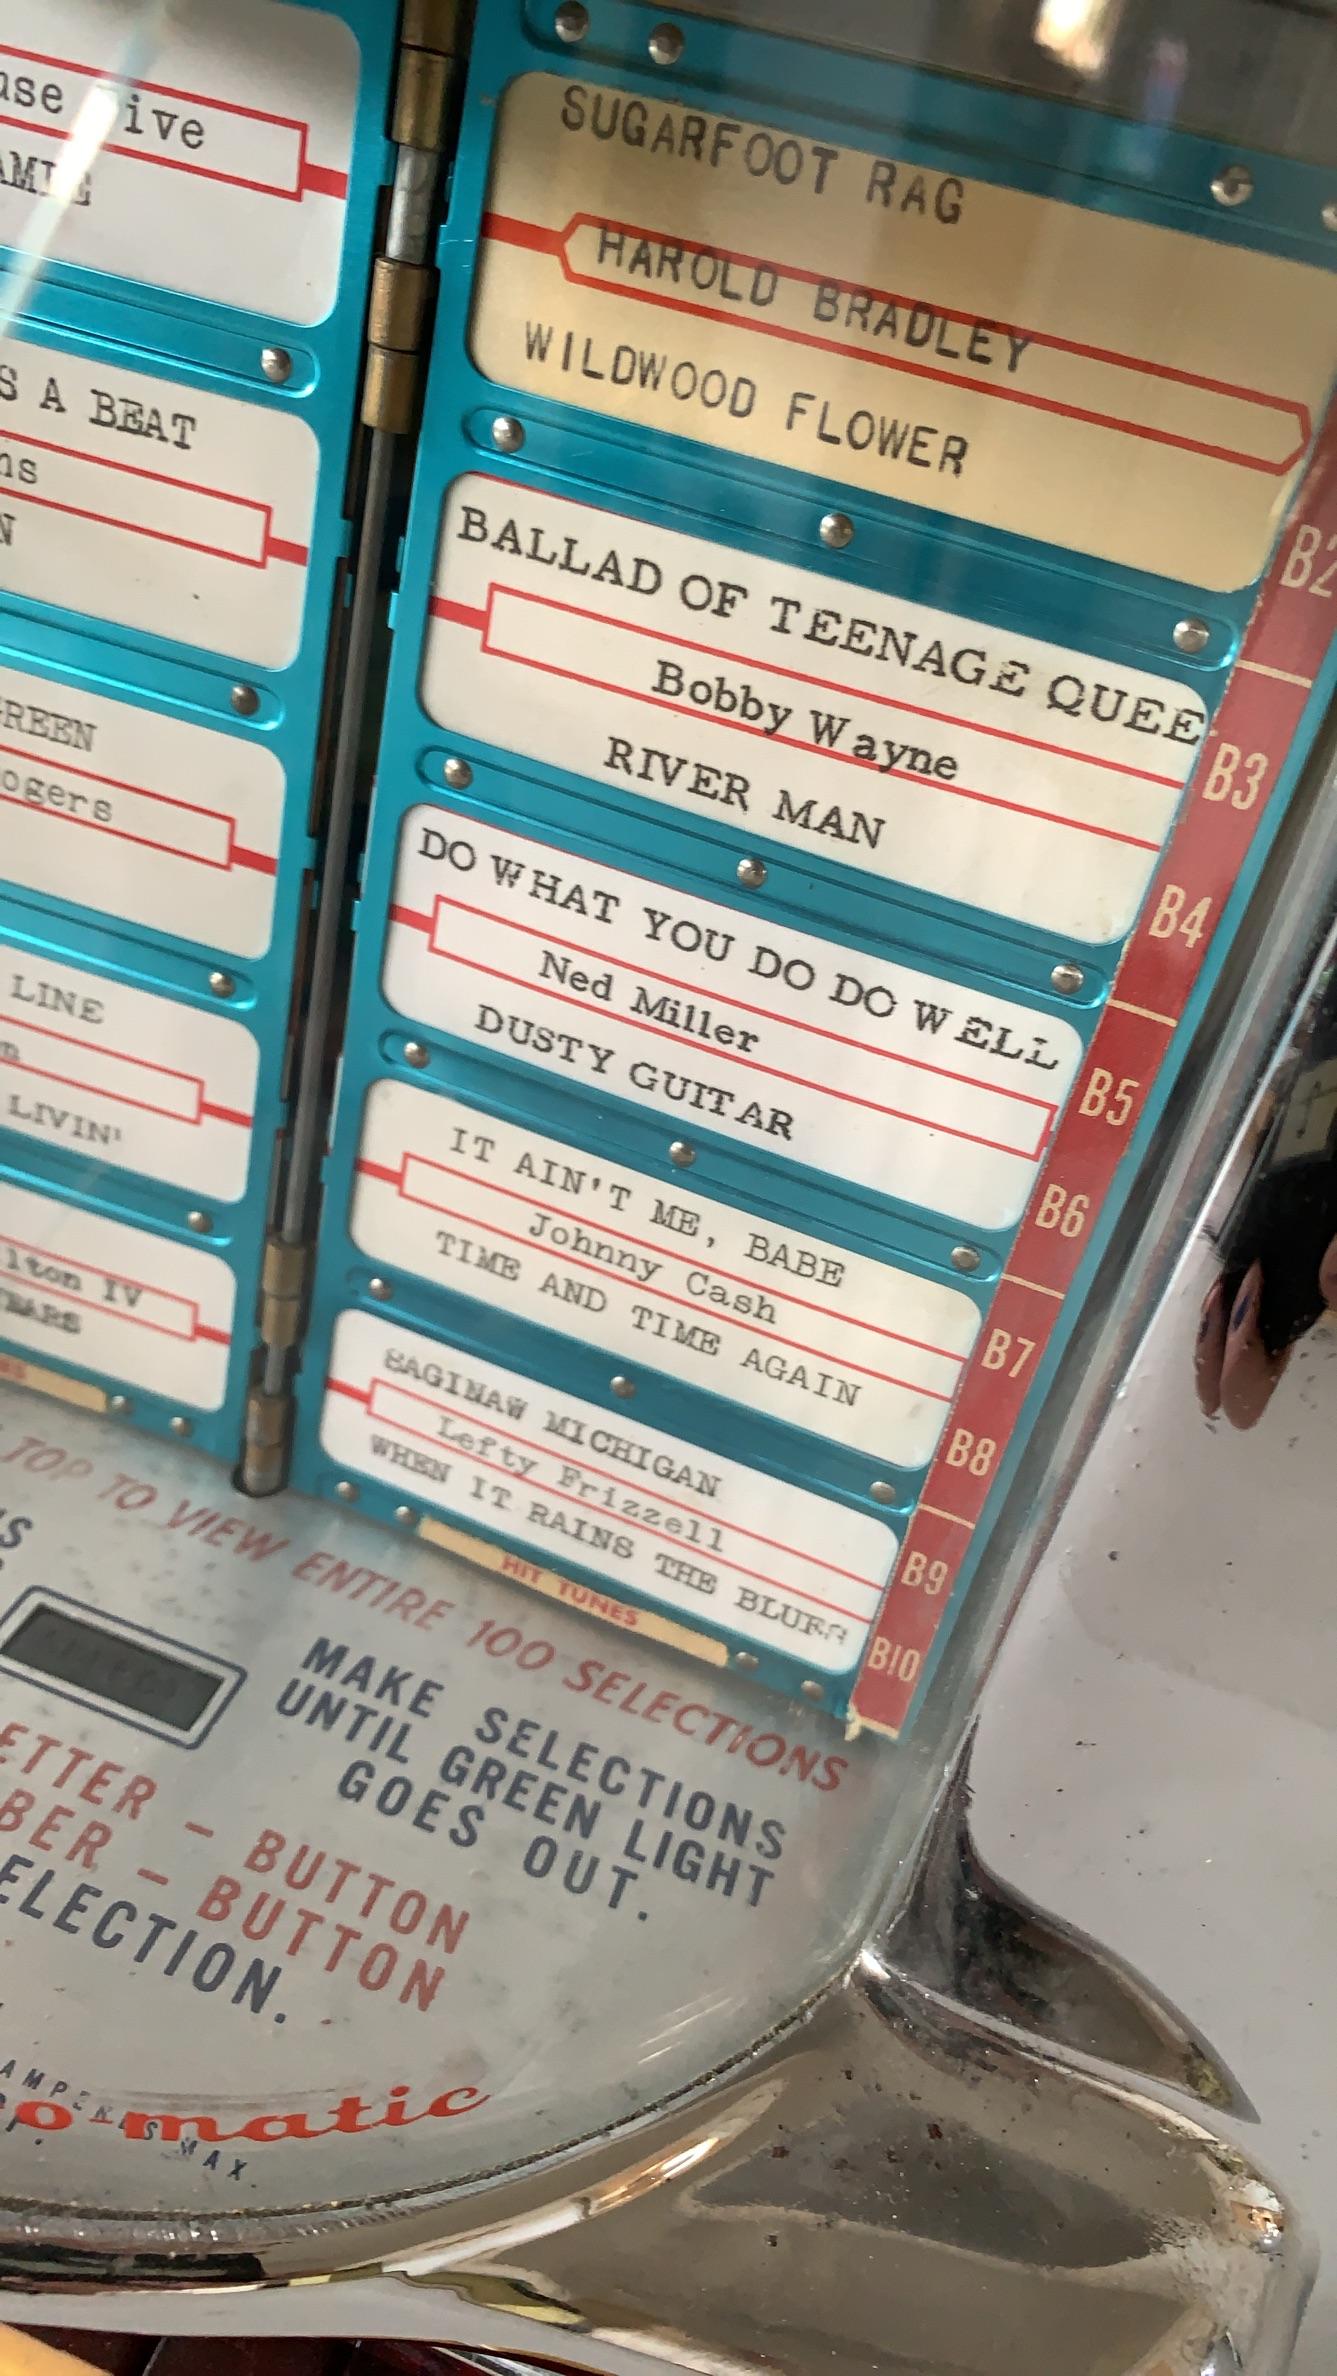 ive
S A BEAT
REEN
ogers
LINE
LIVIN'
lton IV
SUGARFOOT RAG
HAROLD BRADLEY
WILDWOOD FLOWER
B2
BALLAD OF TEENAGE QUEE
Bobby Wayne
RIVER MAN
B3
B4
DO WHAT YOU DO DO WELL
Ned Miller
DUSTY GUITAR
B5
B6
IT AIN'T ME, BABE
Johnny Cash
TIME AND TIME AGAIN
B7
B8
SAGINAW MICHIGAN
Lefty Frizzell
WHEN IT RAINS THE BLUES
B9
B10
HIT TUNES
TOP TO VIEW ENTIRE 100 SELECTIONS
MAKE SELECTIONS
UNTIL GREEN LIGHT
GOES OUT.
ETTER - BUTTON
BER - BUTTON
ELECTION.
AMPERES MAX.
o matic